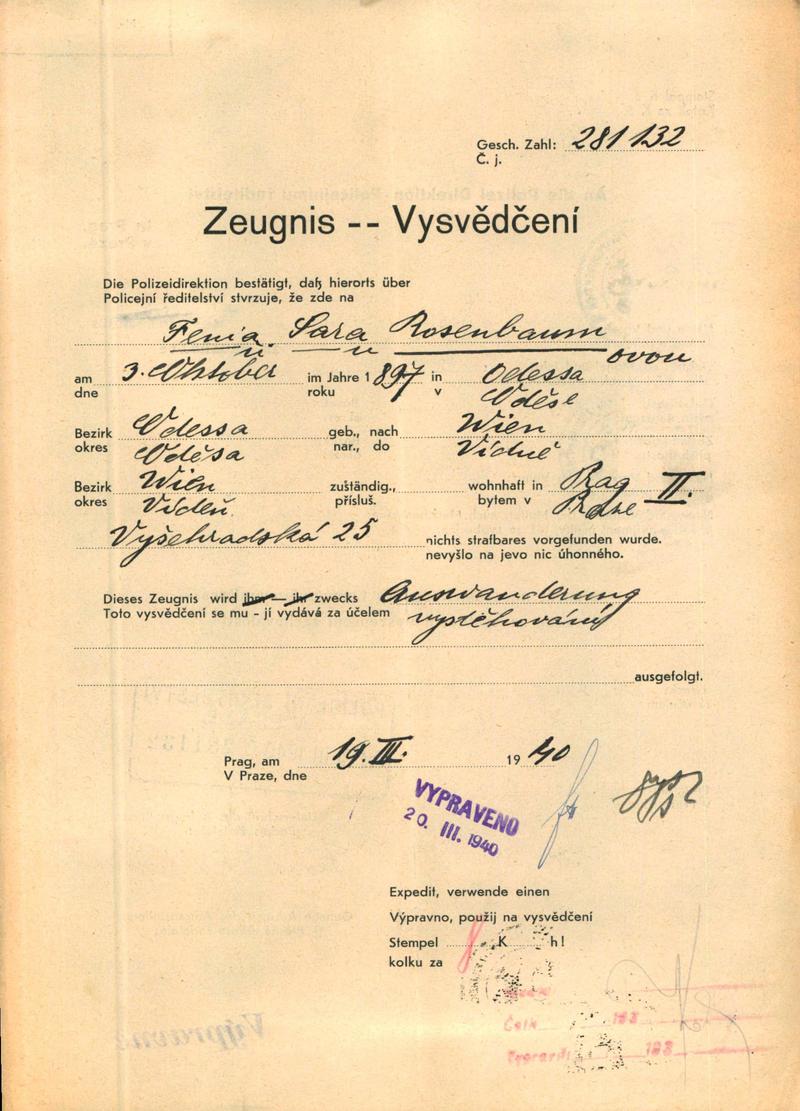 Gesch. Zahl: 281 132
Č. j.
Zeugnis -- Vysvědčení
Die Polizeidirektion bestätigt, daß hierorts über
Policejní ředitelství stvrzuje, že zde na
Fenia Sara Rosenbaum
ovou
am 3. Oktober im Jahre 1 897 in Odessa
dne roku v Oděse
Bezirk Odessa geb., nach Wien
okres Oděsa nar., do Vídně
Bezirk Wien zuständig., wohnhaft in Prag II.
okres Vídeň přísluš. bytem v Praze
Vyšehradská 25 nichts strafbares vorgefunden wurde.
nevyšlo na jevo nic úhonného.
Dieses Zeugnis wird ihm — ihr zwecks Auswanderung
Toto vysvědčení se mu - jí vydává za účelem vystěhování
ausgefolgt.
Prag, am 19. III. 1940
V Praze, dne
VYPRAVENO
20. III. 1940
Expedit, verwende einen
Výpravno, použij na vysvědčení
Stempel K h!
kolku za
193
193